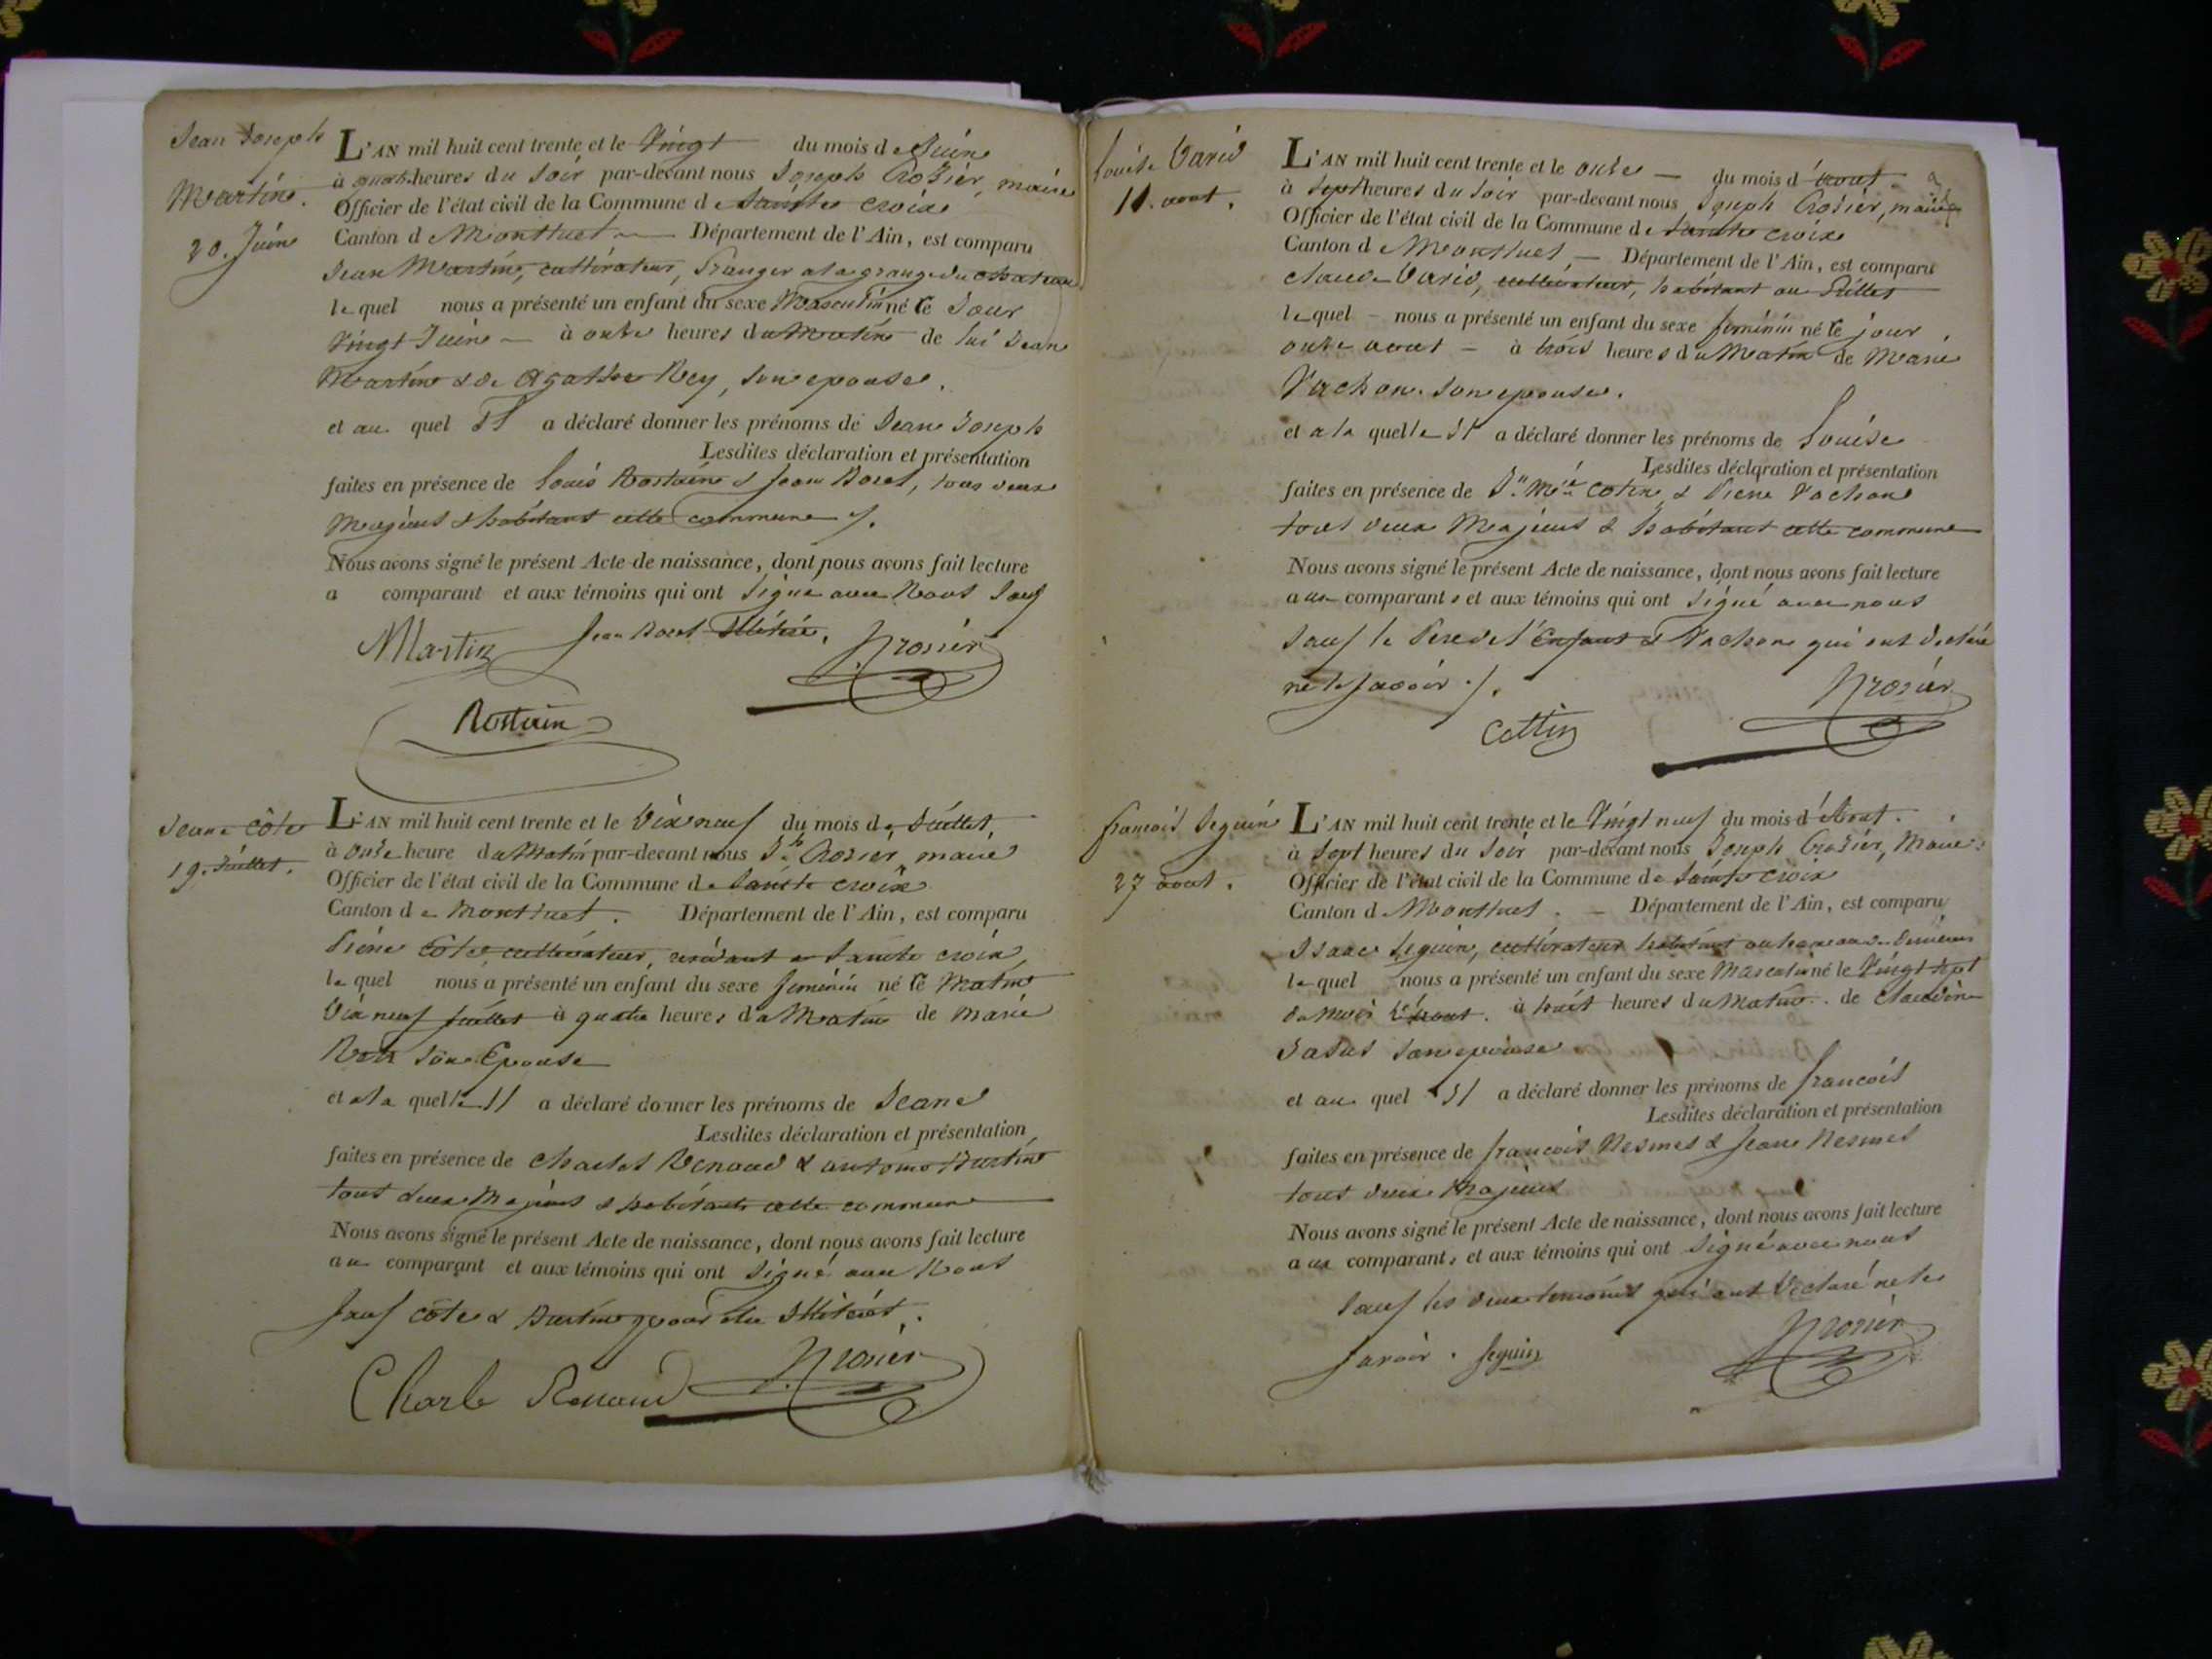 Jean Joseph
Martin.
20. Juin
L'AN mil huit cent trente et le Vingt du mois de Juin
à quatre heures du soir par-devant nous Joseph Crozier, maire
Officier de l'état civil de la Commune de Sainte croix
Canton de Montluel Département de l'Ain, est comparu
Jean Martin, cultivateur, Granger a la grange du chateau
lequel nous a présenté un enfant du sexe Masculin né le Jour
Vingt Juin à onze heures du Matin de lui Jean
Martin & de Agathe Rey, son epouse.
et au quel Il a déclaré donner les prénoms de Jean Joseph
Lesdites déclaration et présentation
faites en présence de Louis Rostain & Jean Borel, tous deux
Majeurs & habitant cette commune
Nous avons signé le présent Acte de naissance, dont nous avons fait lecture
a comparant et aux témoins qui ont Signé avec Nous Sauf
Jean Borel Illétéré.
Martin
Jcrozier
Rostain
Jeane Côte
19. Juillet.
L'AN mil huit cent trente et le Dix neuf du mois de Juillet,
à onze heure du Matin par-devant nous Jh Crozier, maire
Officier de l'état civil de la Commune de Sainte croix
Canton de Montluel. Département de l'Ain, est comparu
Pierre Côte, cultivateur, residant a Sainte croix
lequel nous a présenté un enfant du sexe feminin né le Matin
Dix neuf Juillet à quatre heures du Matin de Marie
son Epouse
et a la quelle Il a déclaré donner les prénoms de Jeane
Lesdites déclaration et présentation
faites en présence de Charles Renaud & antoine
tout deux Majeurs & habitants cette commune
Nous avons signé le présent Acte de naissance, dont nous avons fait lecture
au comparant et aux témoins qui ont Signé avec Nous
Sauf côte & pour etre Illiterés.
Charle Renaud
Jcrozier
Louise David
11. aout.
L'AN mil huit cent trente et le onze du mois d'aout.
à sept heures du Soir par-devant nous Joseph Crozier, maire
Officier de l'état civil de la Commune de Sainte croix
Canton de Montluel Département de l'Ain, est comparu
claude David, cultivateur, habitant au
lequel nous a présenté un enfant du sexe feminin né le jour
onze aout à trois heures du Matin de Marie
Vachon. Son epouse.
et a la quelle Il a déclaré donner les prénoms de Louise
Lesdites déclaration et présentation
faites en présence de Cotin & Pierre Vachon
tout deux Majeurs & habitant cette commune
Nous avons signé le présent Acte de naissance, dont nous avons fait lecture
aux comparants et aux témoins qui ont Signé avec nous
Sauf le Pere de l'Enfant & Vachon qui ont declaré
ne le savoir
Cottin
Jcrozier
francois Seguin
27 aout.
L'AN mil huit cent trente et le Vingt neuf du mois d'Aout.
à Sept heures du Soir par-devant nous Joseph Crozier, Maire
Officier de l'état civil de la Commune de Sainte croix
Canton de Montluel. Département de l'Ain, est comparu
Isaac Seguin, cultivateur habitant au hameau
lequel nous a présenté un enfant du sexe Masculin né le Vingt Sept
du Mois d'Aout. à huit heures du Matin. de Claudine
son epouse
et au quel Il a déclaré donner les prénoms de francois
Lesdites déclaration et présentation
faites en présence de francois Nesmes & Jean Nesmes
tout deux Majeurs
Nous avons signé le présent Acte de naissance, dont nous avons fait lecture
aux comparants et aux témoins qui ont Signé avec nous
Sauf les deux temoins qui ont declaré ne le
savoir. Seguin
Jcrozier